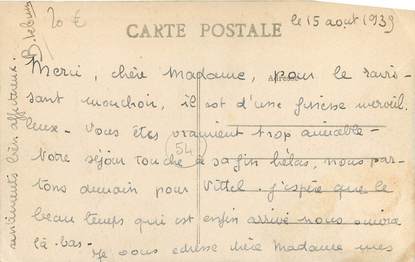 CARTE POSTALE
20 €
le 15 août 1939
Merci, chère Madame, pour le ravis-
sant mouchoir, il est d'une finesse merveil-
leux - Vous êtes vraiment trop aimable -
Adresse
Notre séjour touche à sa fin hélas, nous par-
54
tons demain pour Vittel. J'espère que le
beau temps qui est enfin arrivé nous suivra
là-bas -
Je vous adresse chère Madame mes
sentiments bien affectueux.